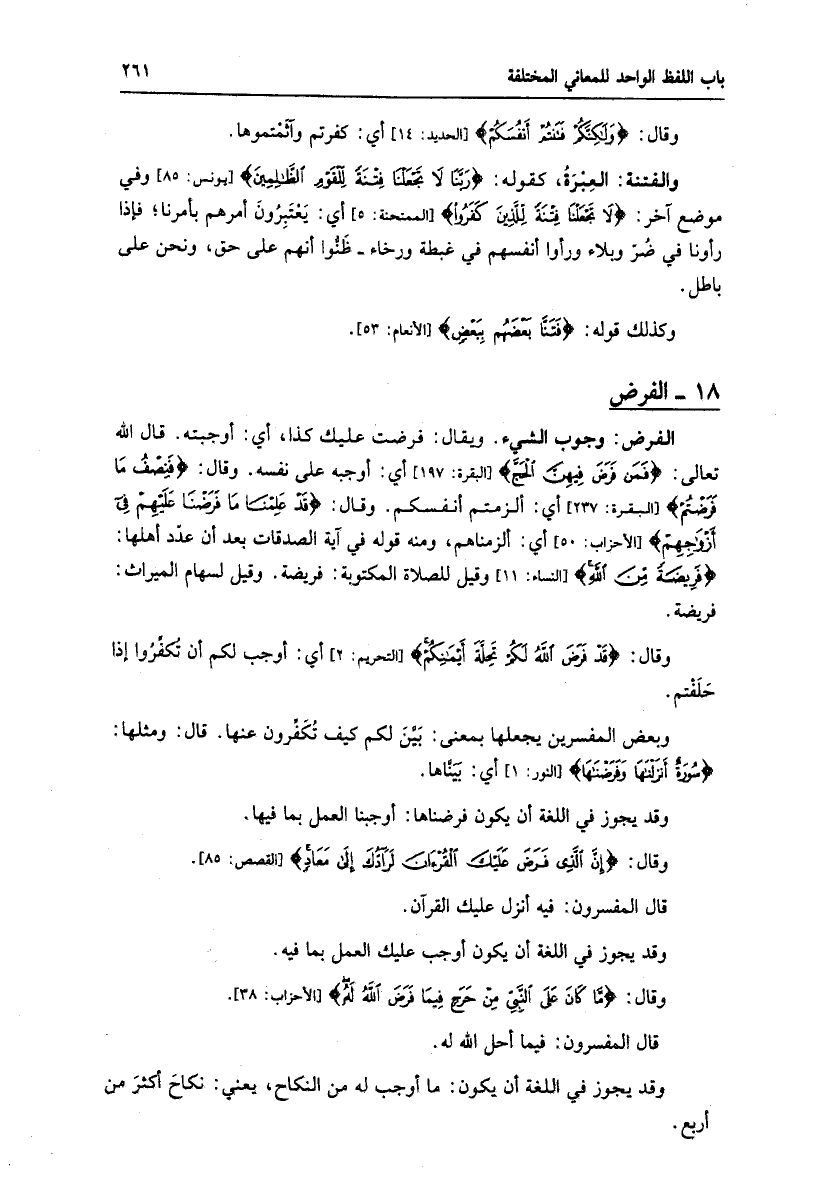 باب اللفظ الواحد للمعاني المختلفة ٢٦١
وقال: ﴿وَلَٰكِنَّكُمْ فَتَنتُمْ أَنفُسَكُمْ﴾ [الحديد: ١٤] أي: كفرتم وآثَمْتموها.
والفتنة: العِبْرَةُ، كقوله: ﴿رَبَّنَا لَا تَجْعَلْنَا فِتْنَةً لِّلْقَوْمِ ٱلظَّٰلِمِينَ﴾ [يونس: ٨٥] وفي
موضع آخر: ﴿لَا تَجْعَلْنَا فِتْنَةً لِّلَّذِينَ كَفَرُوا۟﴾ [الممتحنة: ٥] أي: يَعْتَبِرُونَ أمرهم بأمرنا؛ فإذا
رأونا في ضُرّ وبلاء ورأوا أنفسهم في غبطة ورخاء ـ ظَنُّوا أنهم على حق، ونحن على
باطل.
وكذلك قوله: ﴿فَتَنَّا بَعْضَهُم بِبَعْضٍ﴾ [الأنعام: ٥٣].
١٨ ـ الفرض
الفرض: وجوب الشيء. ويقال: فرضت عليك كذا، أي: أوجبته. قال الله
تعالى: ﴿فَمَن فَرَضَ فِيهِنَّ ٱلْحَجَّ﴾ [البقرة: ١٩٧] أي: أوجبه على نفسه. وقال: ﴿فَنِصْفُ مَا
فَرَضْتُمْ﴾ [البقرة: ٢٣٧] أي: ألزمتم أنفسكم. وقال: ﴿قَدْ عَلِمْنَا مَا فَرَضْنَا عَلَيْهِمْ فِىٓ
أَزْوَٰجِهِمْ﴾ [الأحزاب: ٥٠] أي: ألزمناهم، ومنه قوله في آية الصدقات بعد أن عدّد أهلها:
﴿فَرِيضَةً مِّنَ ٱللَّهِ﴾ [النساء: ١١] وقيل للصلاة المكتوبة: فريضة. وقيل لسهام الميراث:
فريضة.
وقال: ﴿قَدْ فَرَضَ ٱللَّهُ لَكُمْ تَحِلَّةَ أَيْمَٰنِكُمْ﴾ [التحريم: ٢] أي: أوجب لكم أن تُكفِّرُوا إذا
حَلَفْتم.
وبعض المفسرين يجعلها بمعنى: بَيَّنَ لكم كيف تُكَفِّرون عنها. قال: ومثلها:
﴿سُورَةٌ أَنزَلْنَٰهَا وَفَرَضْنَٰهَا﴾ [النور: ١] أي: بَيَّنَّاها.
وقد يجوز في اللغة أن يكون فرضناها: أوجبنا العمل بما فيها.
وقال: ﴿إِنَّ ٱلَّذِى فَرَضَ عَلَيْكَ ٱلْقُرْءَانَ لَرَآدُّكَ إِلَىٰ مَعَادٍ﴾ [القصص: ٨٥].
قال المفسرون: فيه أنزل عليك القرآن.
وقد يجوز في اللغة أن يكون أوجب عليك العمل بما فيه.
وقال: ﴿مَّا كَانَ عَلَى ٱلنَّبِىِّ مِنْ حَرَجٍ فِيمَا فَرَضَ ٱللَّهُ لَهُۥ﴾ [الأحزاب: ٣٨].
قال المفسرون: فيما أحل الله له.
وقد يجوز في اللغة أن يكون: ما أوجب له من النكاح، يعني: نكاحَ أكثرَ من
أربع.